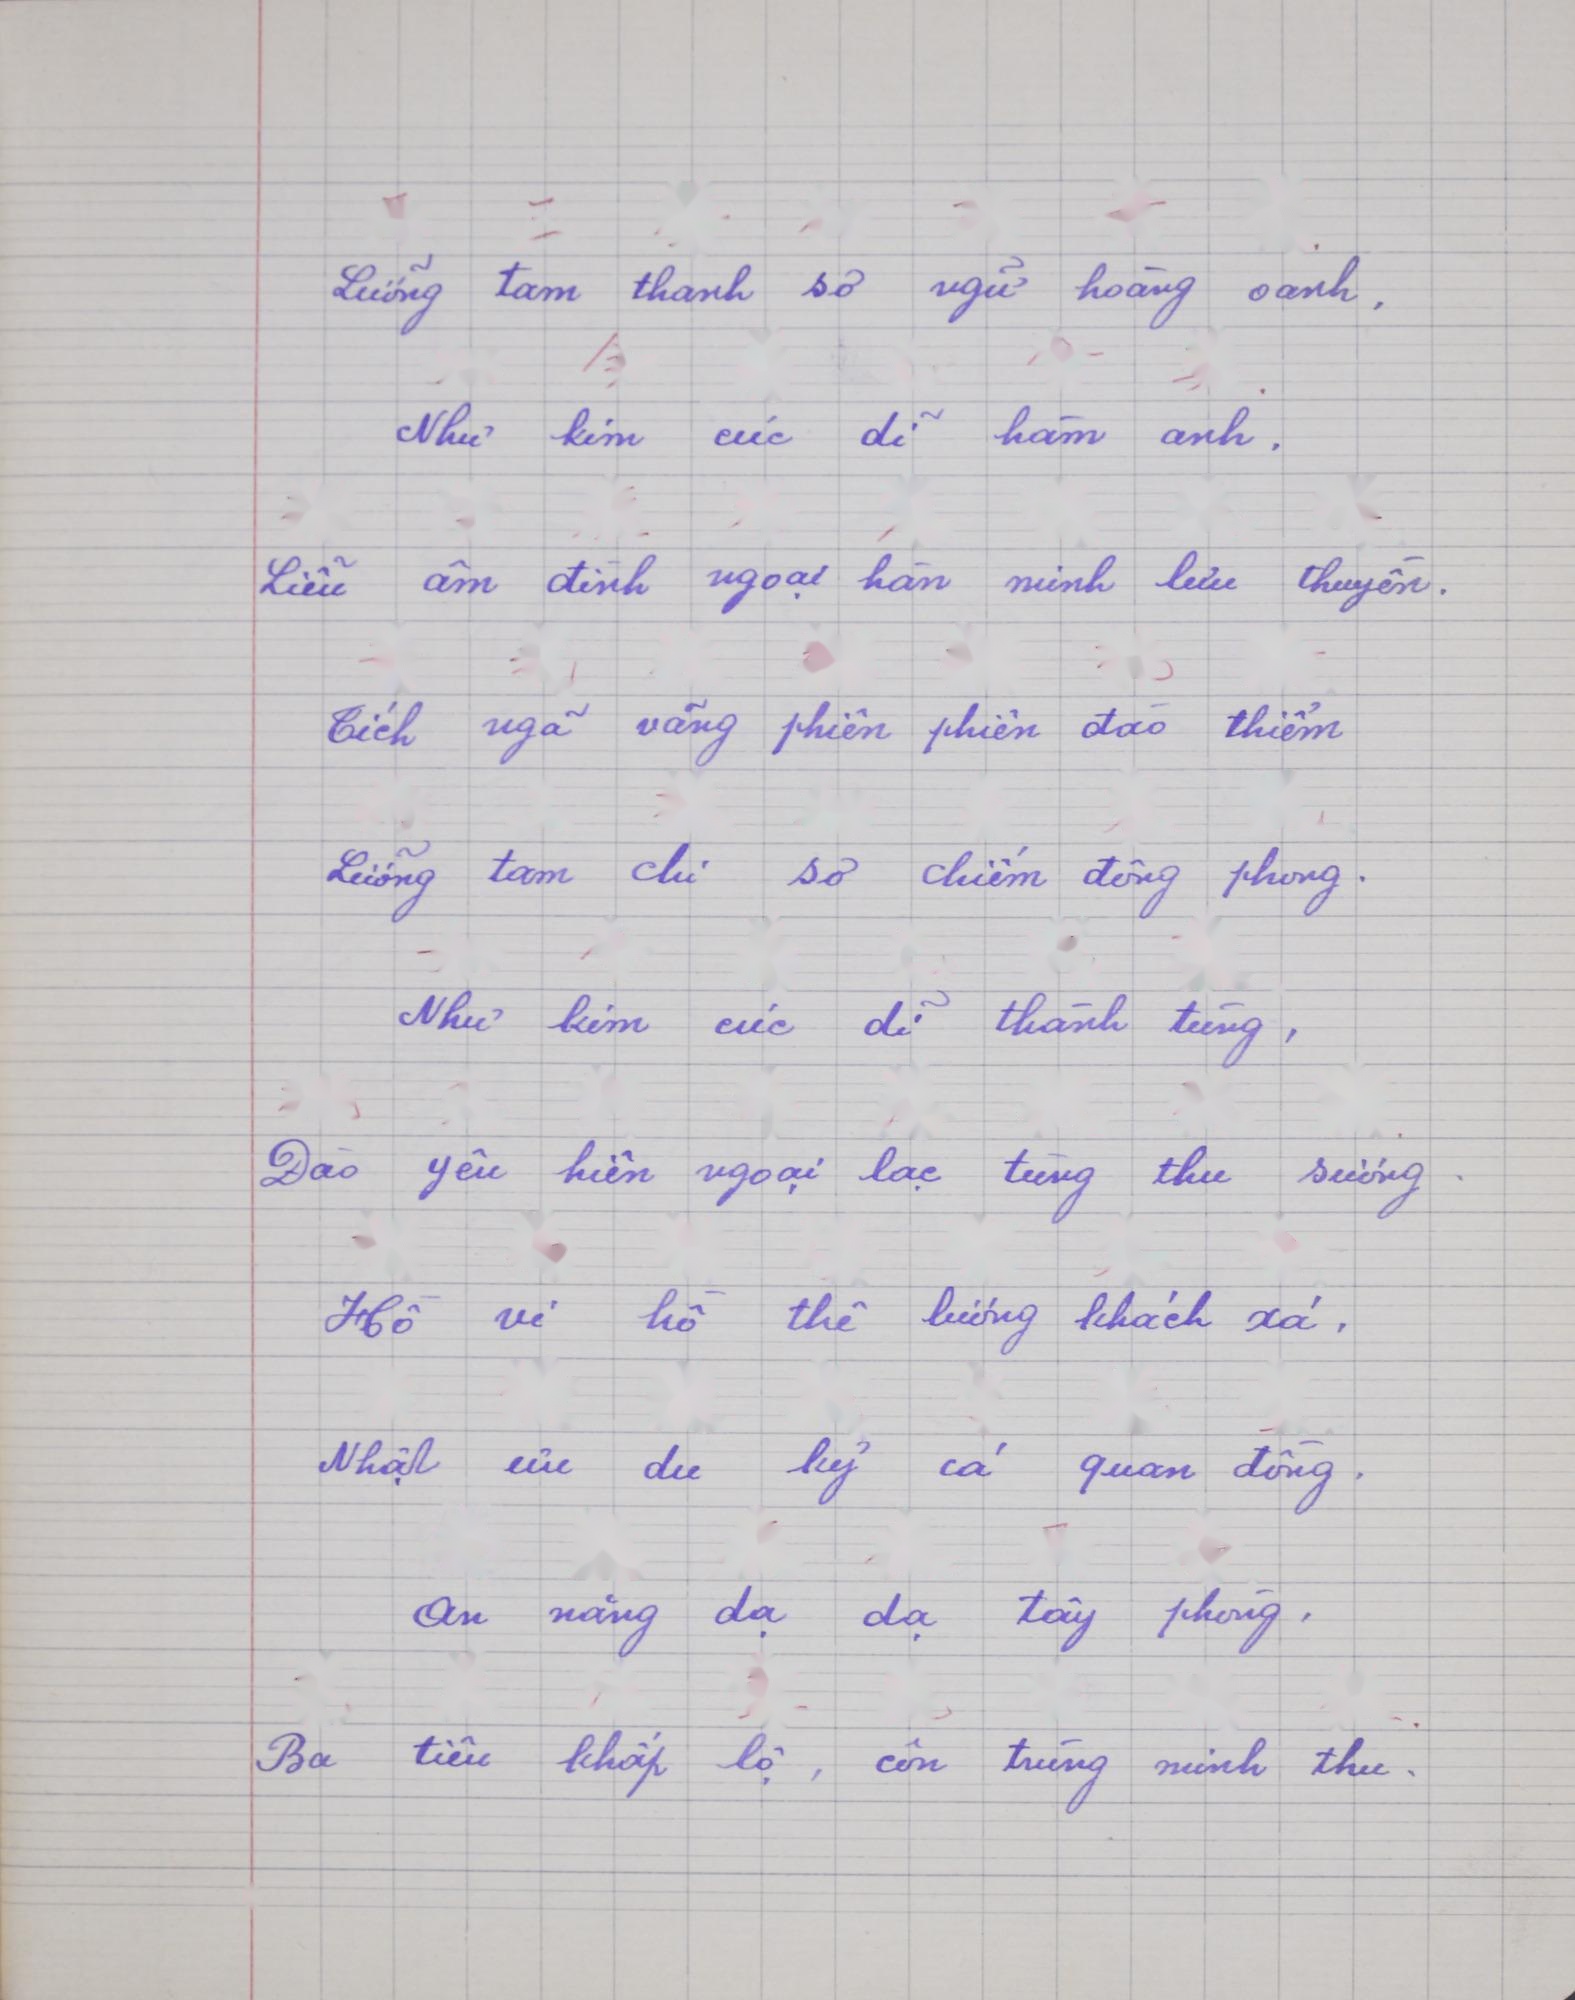 Lưỡng tam thanh sơ ngữ hoàng oanh,
Như kim cúc dĩ hàm anh.
Liễu âm đình ngoại hàn minh lưu thuyền.
Tích ngã vãng phiên phiên đào thiểm
Lưỡng tam chi sơ chiếm đông phong.
Như kim cúc dĩ thành tùng,
Đào yêu hiên ngoại lạc tùng thu sương.
Hồ vi hồ thê lương khách xá,
Nhật cửu du kỷ cá quan đồng.
An năng dạ dạ tây phong,
Ba tiêu khấp lộ, côn trùng minh thu.